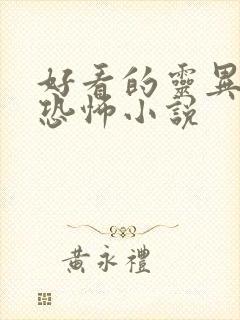 好看的靈異
恐怖小說
黃永禮